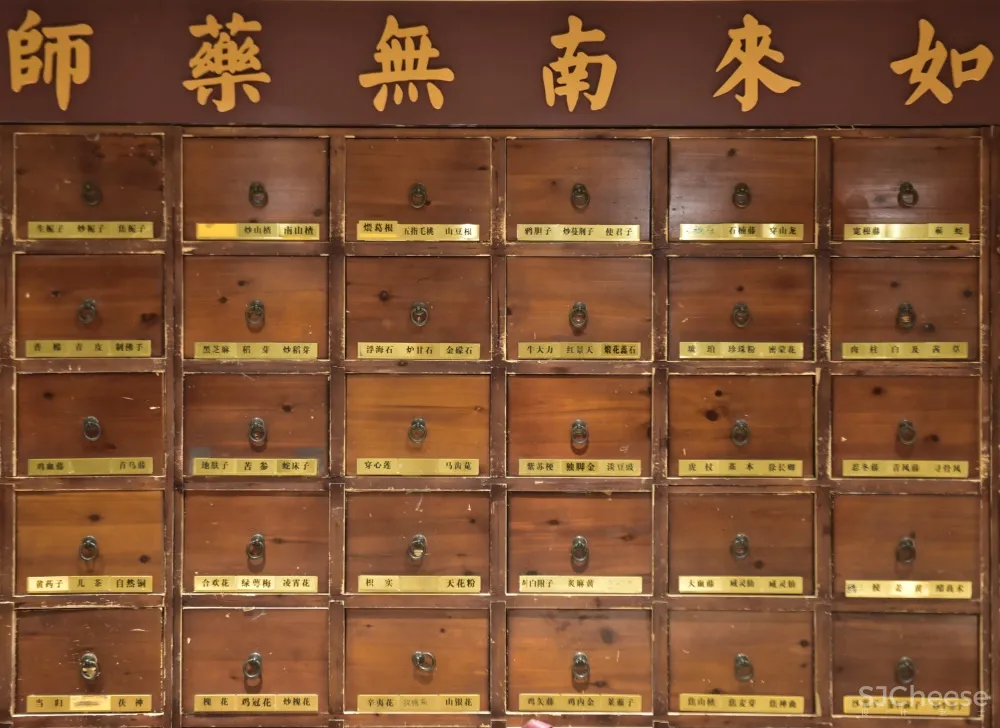 師藥無南來如
生栀子 炒栀子 焦栀子
炒山楂 南山楂
煨葛根 五指毛桃 山豆根
鸦胆子 炒蔓荆子 使君子
石楠藤 穿山龙
宽根藤 蕲蛇
香橼 青皮 制佛手
黑芝麻 稻芽 炒稻芽
浮海石 炉甘石 金礞石
牛大力 红景天 煅花蕊石
琥珀 珍珠粉 密蒙花
肉桂 白及 茜草
鸡血藤 首乌藤
地肤子 苦参 蛇床子
穿心莲 马齿苋
紫苏梗 独脚金 淡豆豉
虎杖 藁本 徐长卿
忍冬藤 青风藤 寻骨风
黄药子 儿茶 自然铜
合欢花 绿萼梅 凌霄花
枳实 天花粉
白附子 炙麻黄
大血藤 威灵仙 威灵仙
棱 姜黄 醋莪术
当归 茯神
槐花 鸡冠花 炒槐花
辛夷花 山银花
鸡矢藤 鸡内金 莱菔子
焦山楂 焦麦芽 焦神曲
SJCheese